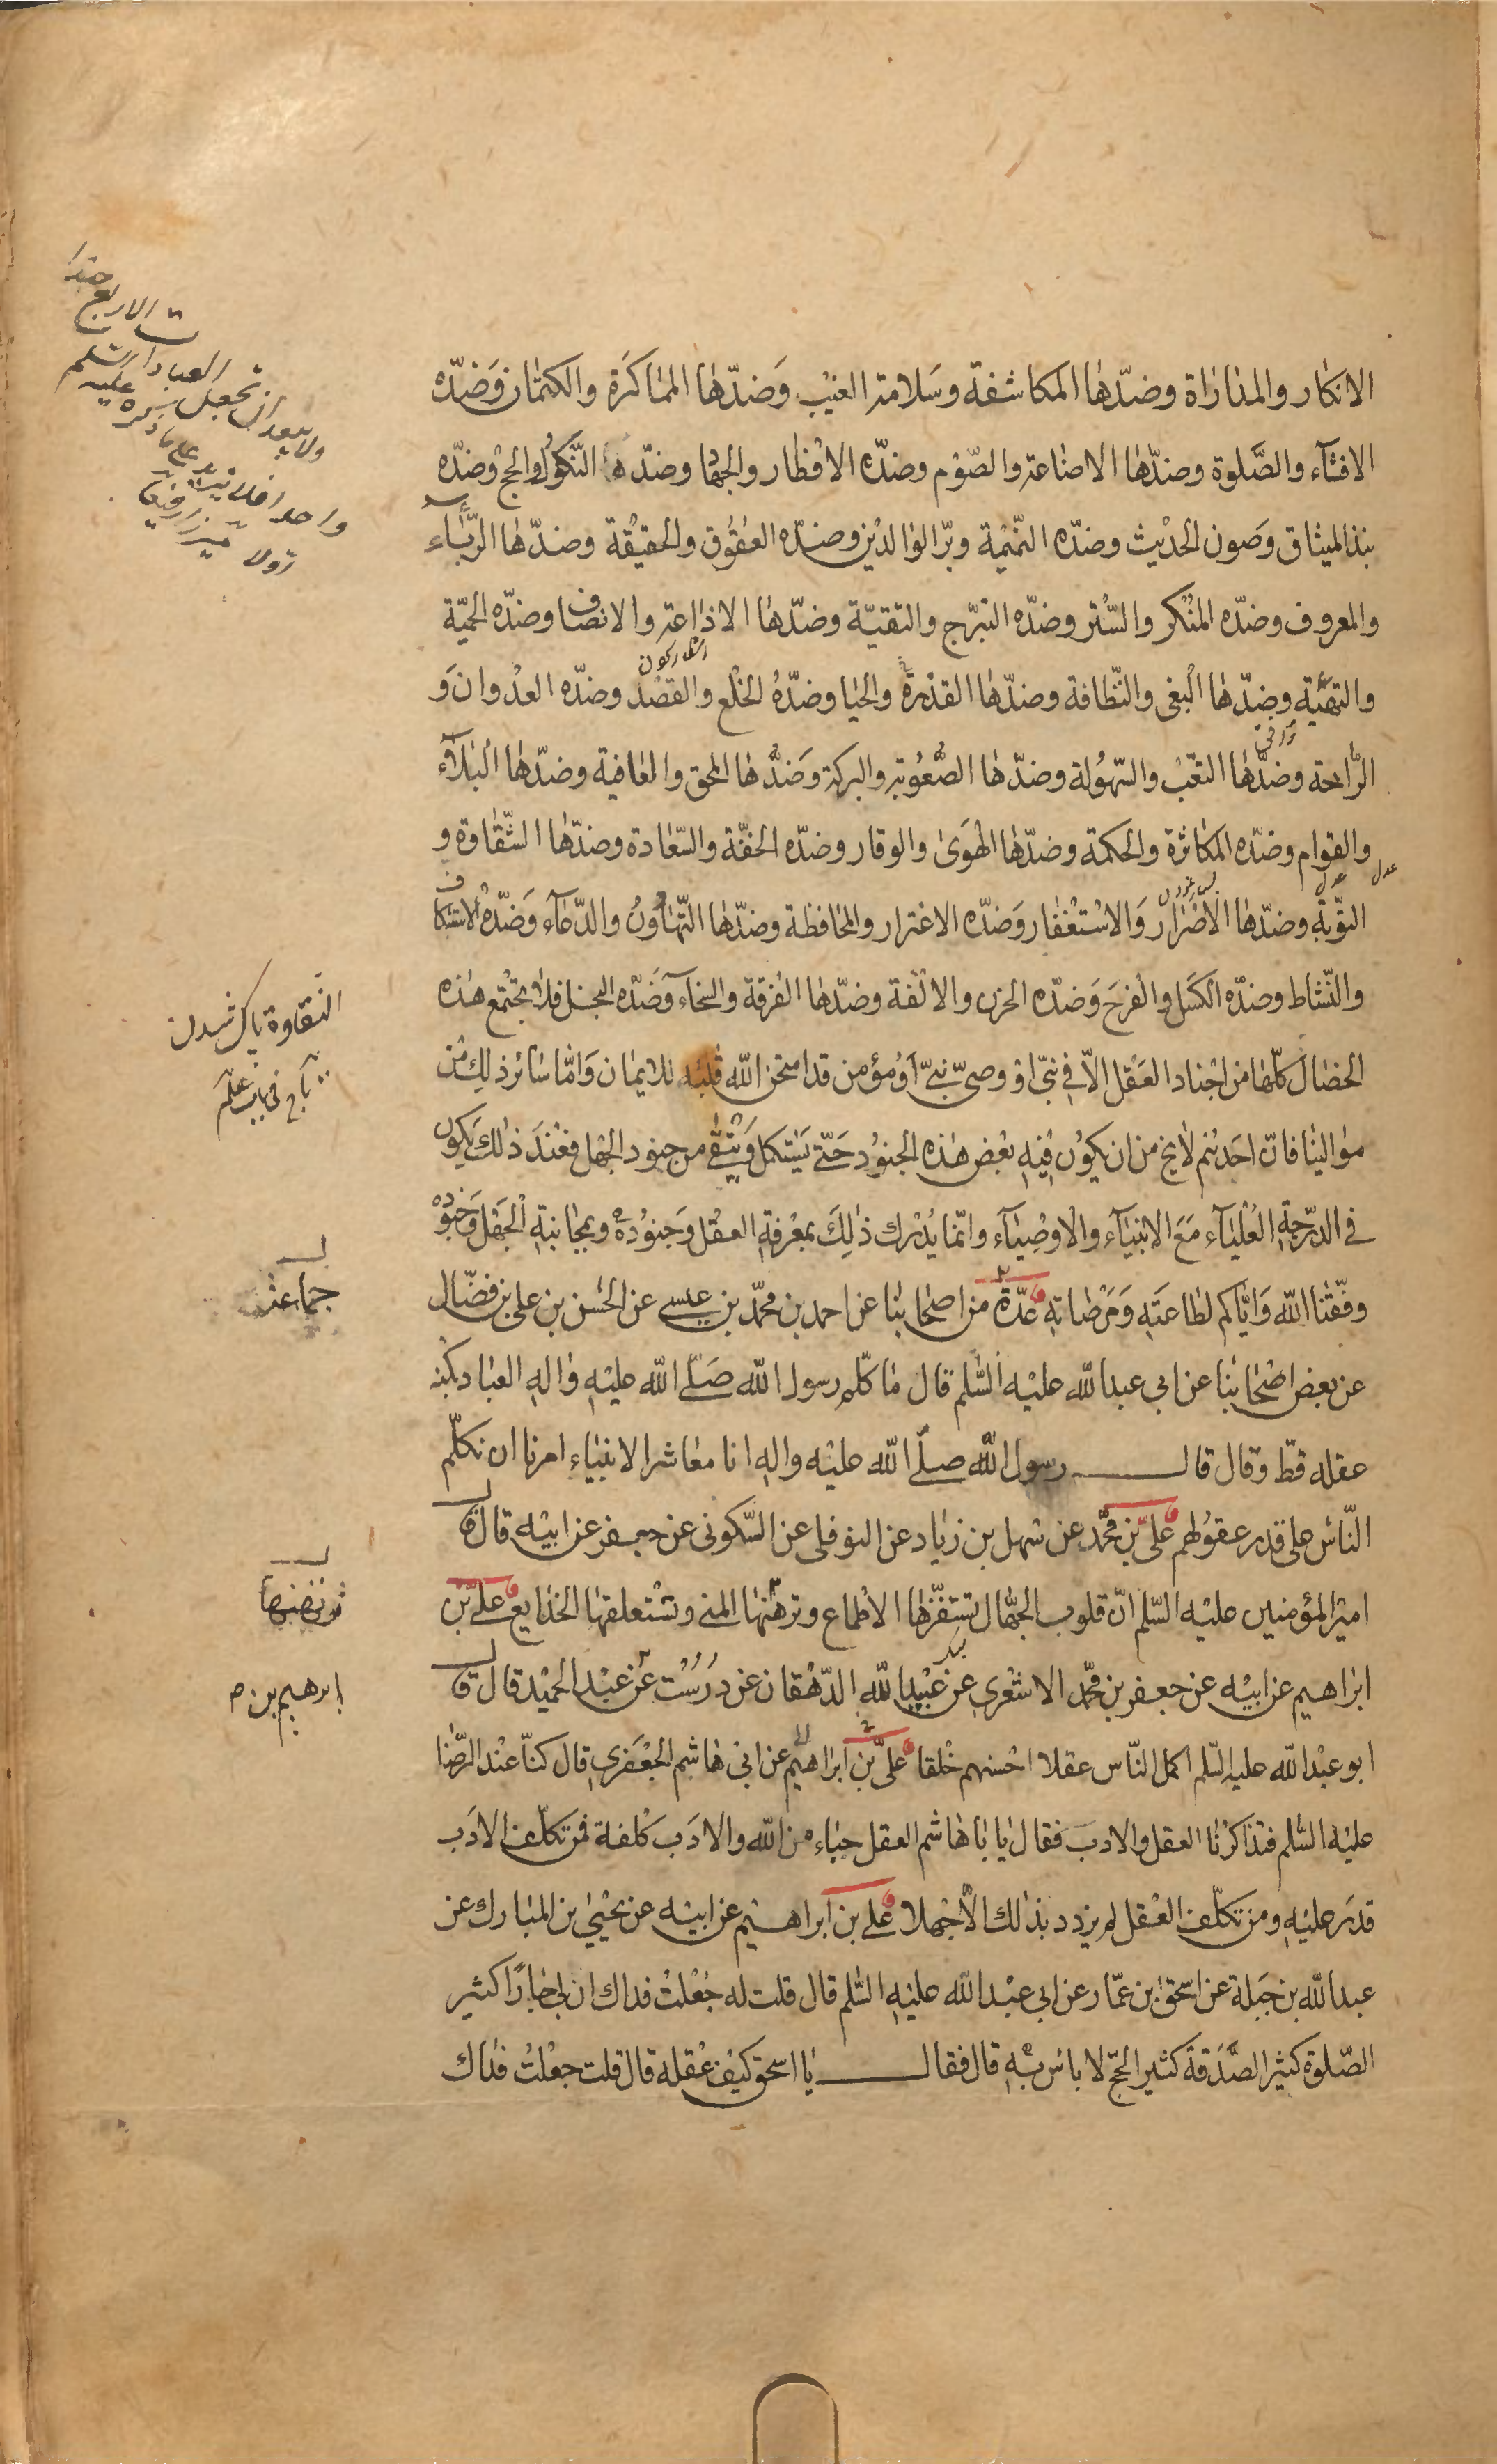 الانكار والمداراة وضدّها المكاشفة وسَلامة الغيْب وَضدّها المماكَرَة والكتمان وَضدّه
الافشآء والصَّلوة وضدّها الاضاعة والصّوْم وضدّه الافْطار والجهاد وضدّه النّكوُل والحجّ وضدّه
نبذ الميثاق وَصون الحدْيث وضدّه النّميْمة وبرّ الوالدْين وضدّه العقوُق والحقيْقة وضدّها الرّيآء
والمعروف وضدّه المنْكر والسّتْر وضدّه التبرّج والتقيّة وضدّها الاذاعة والانصاف وضدّه الحميّة
والتهيَّئة وضدّها الْبغى والنّظافة وضدّها القذرة والحيا وضدّهُ الخلْع والقصْد وضدّه العدْوان وَ
الرّاحة وضدّها التعَب والسّهوُلة وضدّها الصّعُوبة والبركة وَضدّها المحق والعافية وضدّها الْبلآء
والقوام وضدّه المكاثرة والحكمة وضدّها الهَوىٰ والوقار وضدّه الخفّة والسّعادة وضدّها الشّقاوة و
التوّبة وضدّها الاضرار وَالاسْتغْفار وَضدّه الاغترار والمحافظة وضدّها التّهاوُنُ والدّعآء وَضدّه الاستنكاف
والنّشاط وضدّه الكسَل والفرَح وَضدّه الحزن والالْفة وضدّها الفرقة والسخآء وَضدّه البخل فلا يجْتمع هذه
الخصال كلّها من اجْناد العَقْل الّا فى نبىّ او وصىّ نبىّ اَوْ مؤمن قد امتحن اللّه قلبه للايمان وَامّا سائر ذلِك مْن
موالينا فانّ احَدهُم لايخ من ان يكوُن فيْهِ بعْض هذه الجنوُد حَتّى يَسْتكمل وَينْقى من جنود الجهْل فعْندَ ذلك يَكون
فى الدّرجة العُلْيآء مَعَ الانْبيآء والاوصْيآء وانّما يُدْرك ذلِكَ بمعْرفةِ العقْل وَجنوُده وبمجانبةِ الْجهْل وَجنوده
وفّقنا اللّه وَايّاكم لطاعَتهِ وَمَرْضاتهِ عدّة من اصحابنا عن احمد بن محمّد بن عيسى عن الحسن بن على بن فضّال
عن بعض اصْحابنا عن ابى عبد اللّه عليْه السّلم قال ما كلّم رسول اللّه صَلّى اللّه عليْهِ واله العباد بكنه
عقله قطّ وقال قال رسول اللّه صلّى اللّه عليْه واله انا معاشر الانبياء امرنا ان نكلّم
النّاس على قدر عقولهم علىّ بْن محمّد عن سهل بن زياد عن النوفلى عن السّكونى عن جعفر عن ابيْه قال قال
اميْر المؤمنين عليْه السّلم انّ قلوب الجهّال تستفزّها الاطماع وترتهنها المنى وتسْتعلقها الخدايع علىّ بْن
ابراهيم عن ابيْه عن جعفر بن محمّد الاشْعرى عن عبيْد اللّه الدّهْقان عن دُرُسْت عن عبْد الحميْد قال قال
ابو عبْد اللّه عليه السّلم اكمل النّاس عقلا احْسنهم خلقا علىّ بْن ابراهيْم عن ابى هاشم الجعْفرى قال كنّا عنْد الرّضا
عليْه السّلم فتذاكرْنا العقل والادب فقال يا باهاشم العقل حباء من اللّه والادَب كلفة فمن تكلّف الادَب
قدَر عليْهِ ومن تكلّف العْقل لم يزدد بذلك الّا جْهلا على بن ابراهيم عن ابيْه عن يحْيىٰ بن المبارك عن
عبد اللّه بن جَبَلة عن اسحقٰ بن عمّار عن ابى عبْد اللّه عليْهِ السّلم قال قلت له جُعلتُ فداك ان لى جاراً كثير
الصّلوة كثيْر الصَّدَقة كثيْر الحجّ لا باس بهِ قال فقال يا اسحق كيْف عقْله قال قلت جعلْتُ فداك
ولا يبعد ان تجعل العبادات الاربع جندا
واحدا فلا يزيد على ما ذكره عليه السلم
ميرزا رفيعا
النقاوة پاك شدن
تاج فى باب علم
جماعة
ابرهيم بن م